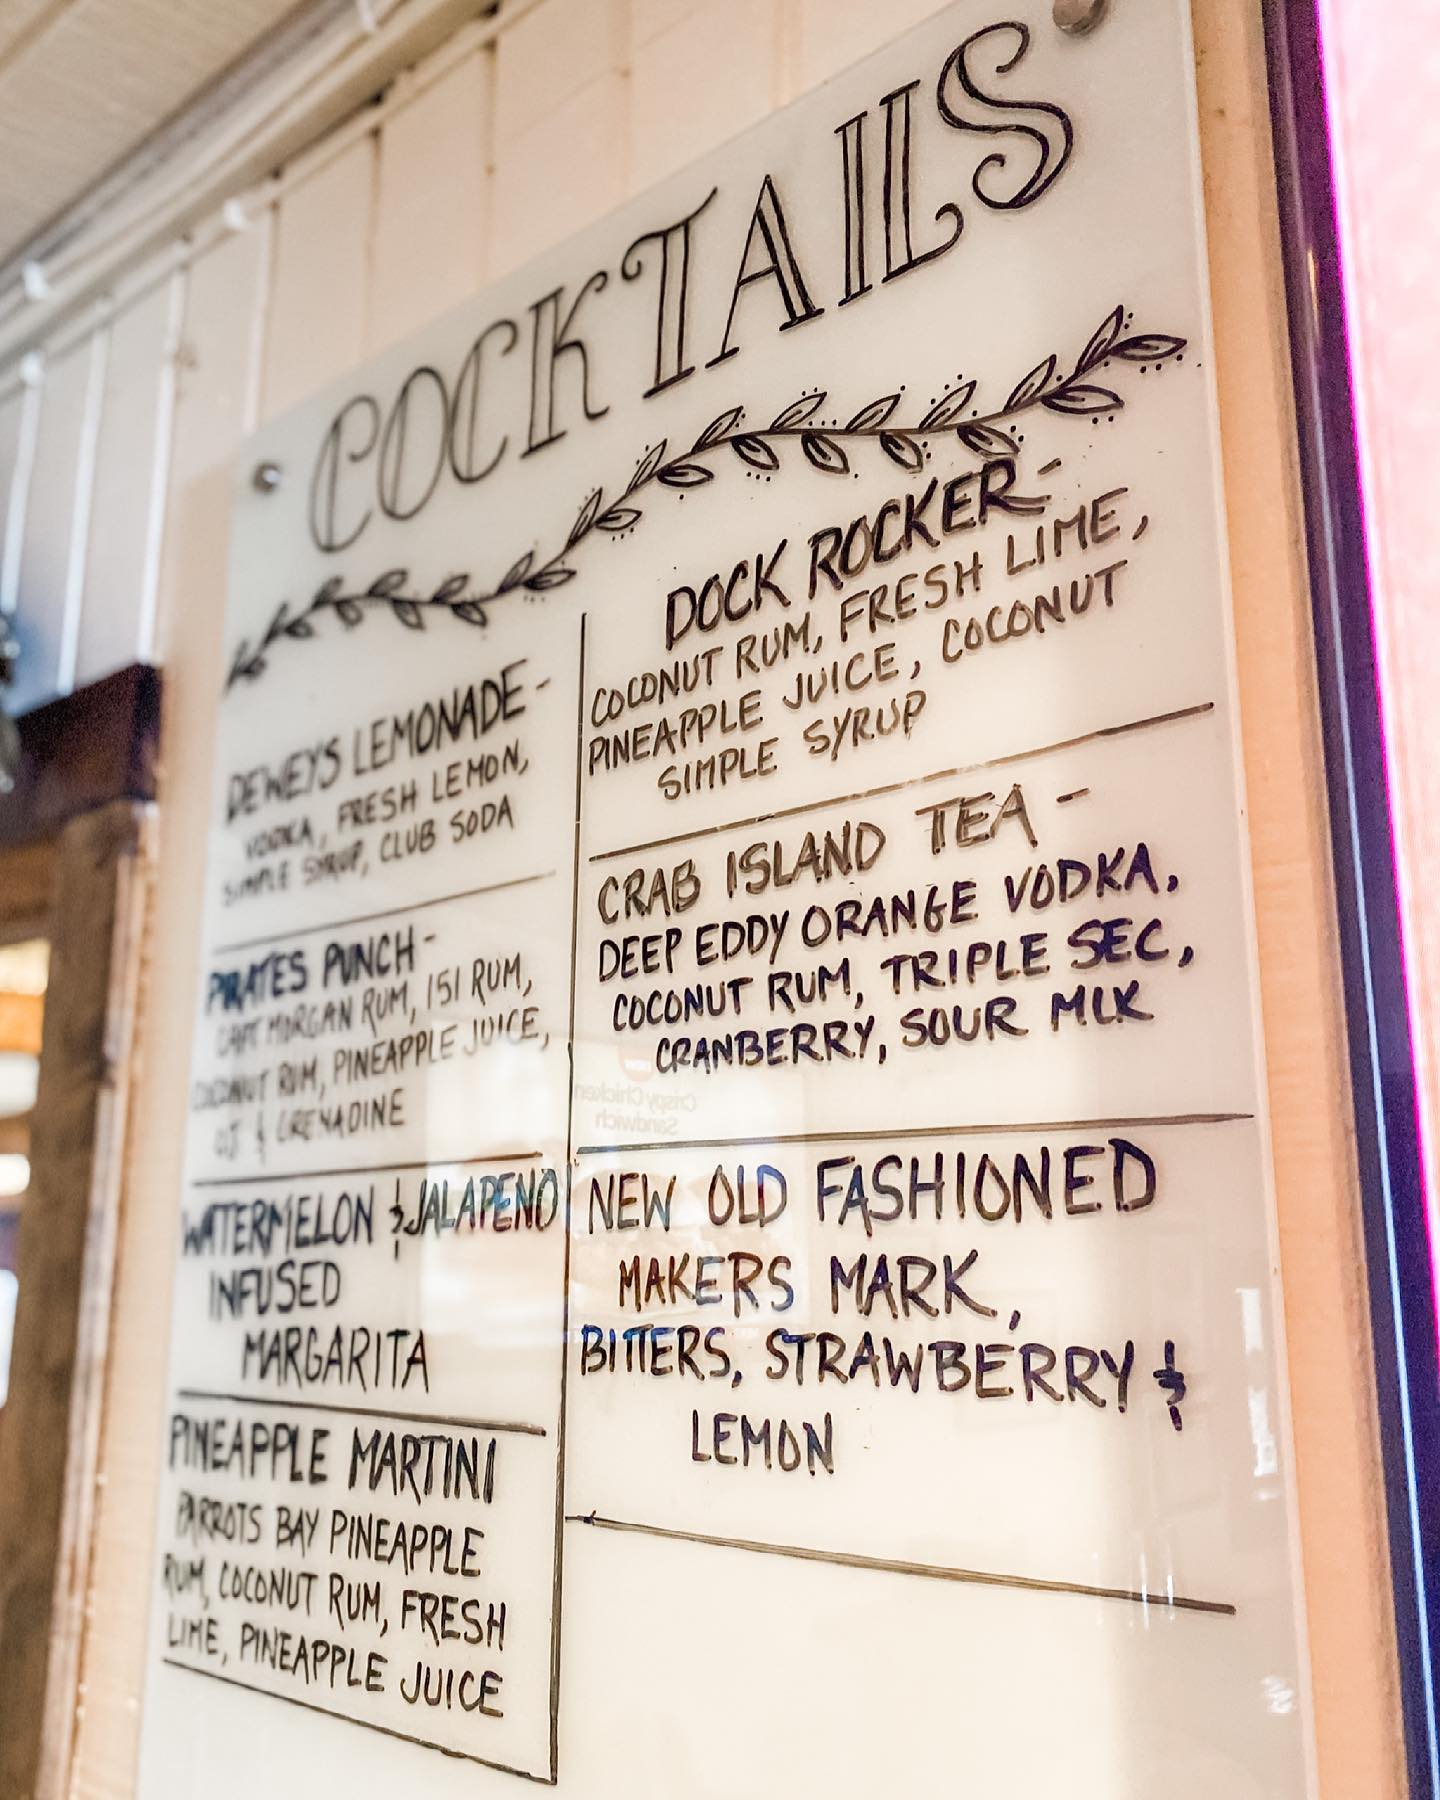 COCKTAILS
DEWEYS LEMONADE -
VODKA, FRESH LEMON,
SIMPLE SYRUP, CLUB SODA
PIRATES PUNCH -
CAPT MORGAN RUM, 151 RUM,
COCONUT RUM, PINEAPPLE JUICE,
OJ & GRENADINE
WATERMELON & JALAPENO
INFUSED
MARGARITA
PINEAPPLE MARTINI
PARROTS BAY PINEAPPLE
RUM, COCONUT RUM, FRESH
LIME, PINEAPPLE JUICE
DOCK ROCKER -
COCONUT RUM, FRESH LIME,
PINEAPPLE JUICE, COCONUT
SIMPLE SYRUP
CRAB ISLAND TEA -
DEEP EDDY ORANGE VODKA,
COCONUT RUM, TRIPLE SEC,
CRANBERRY, SOUR MIX
Crispy Chicken
Sandwich
NEW OLD FASHIONED
MAKERS MARK,
BITTERS, STRAWBERRY &
LEMON